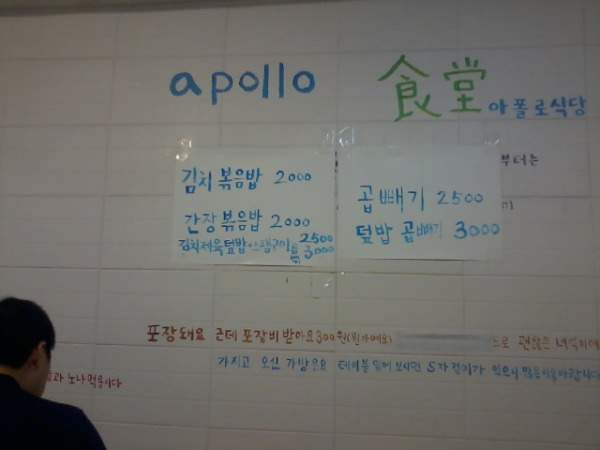 apollo 食堂 아폴로식당
부터는
김치볶음밥 2000
간장볶음밥 2000
김치제육덮밥+스팸구이 2500
3000
곱빼기 2500
덮밥 곱빼기 3000
포장돼요 근데 포장비받아요 300원(원가예요)
느로 괜찮은 녀석이에
가지고 오신 가방은요 테이블 밑에 보시면 S자 걸이가
노나먹음니다